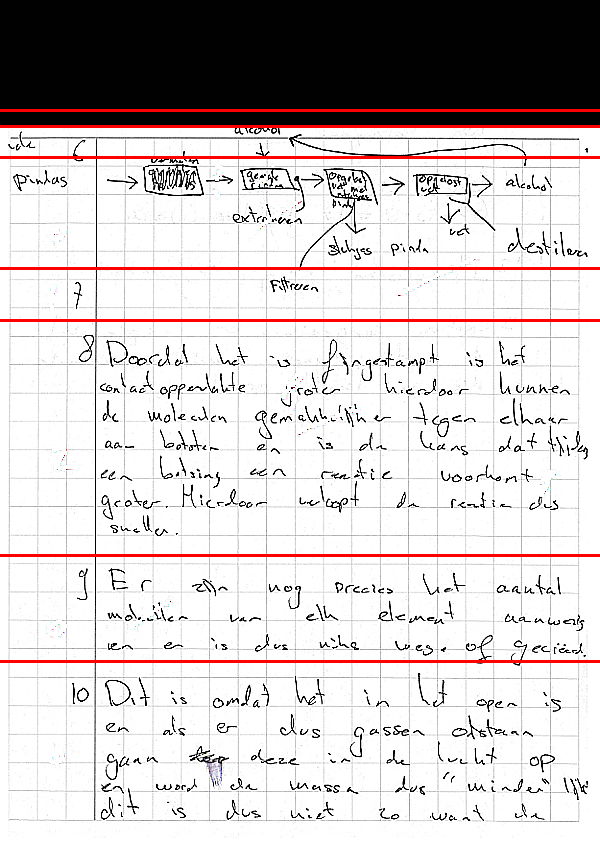 alcohol
ide 6
pindas
gemale pinda
opgelost
opgelost vet
alcohol
extraheren
stukjes pinda
vet
destileren
7
Filtreren
8 Doordat het is fijngestampt is het
contactoppervlakte groter hierdoor kunnen
de moleculen gemakkelijker tegen elkaar
aan botsten en is de kans dat tijdens
een botsing een reactie voorkomt
groter. Hierdoor verloopt de reactie dus
sneller.
9 Er zijn nog precies het aantal
moleculen van elk element aanwezig
en er is dus niks weg of gecreëerd.
10 Dit is omdat het in het open is
en als er dus gassen otstaan
gaan deze in de lucht op
en word de massa dus "minder" lijkt
dit is dus niet zo want de